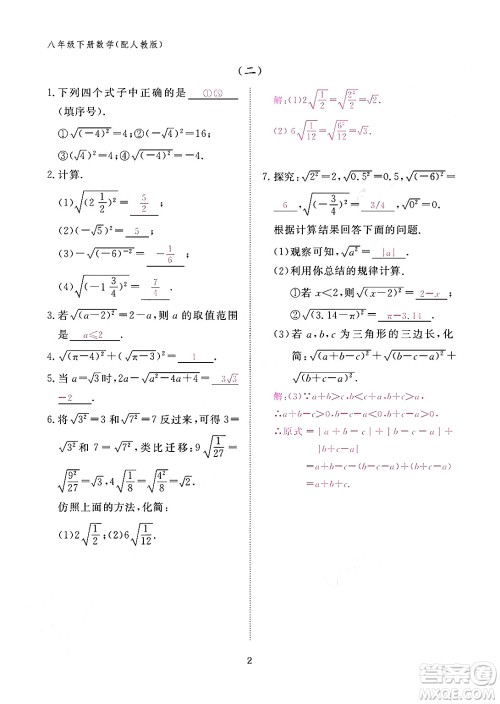 八年级下册数学(配人教版)
(二)
1. 下列四个式子中正确的是 ①③
(填序号).
①√(-4)²=4; ②(-√4)²=16;
③(√4)²=4; ④√(-4)²=-4.
2. 计算.
(1)√(2 1/2)²= 5/2
(2)(-√5)²= 5
(3)-√(-6)⁻²= -1/6
(4)√(-1 3/4)²= 7/4
3. 若√(a-2)²=2-a,则a的取值范围
是 a≤2 .
4. √(π-4)²+(√(π-3)²= 1 .
5. 当a=√3时,则√15-√a²-4a+4= 3√3
-2 .
6. 将√3²=3与√7²=7反过来,得3=
√3²,7=√7²,类比迁移:9√(1/27)=
√(9²/27)=√(9²/27)=√3.
仿照上面的方法,化简:
(1)2√(1/2);(2)6√(1/12).
解:(1)2√(1/2)=√(2²/2)=√2.
(2)6√(1/12)=√(6²/12)=√3.
7. 探究:√2²=2,√0.5²=0.5,√(-6)²
= 6 ,√(-3/4)²= 3/4 ,√0²=0.
根据计算结果回答下面的问题.
(1)观察可知,√a²= |a| .
(2)利用你总结的规律计算.
①若x<2,则√(x-2)²= 2-x ;
②√(3.14-π)²= π-3.14 .
(3)若a,b,c为三角形的三边长,化
简:√(a+b-c)²+√(b-c-a)².
解:(3)∵a+b>c,a+c>b,
∴原式=|a+b-c|+|b-c-a|
=a+b-c+a+c-b
2